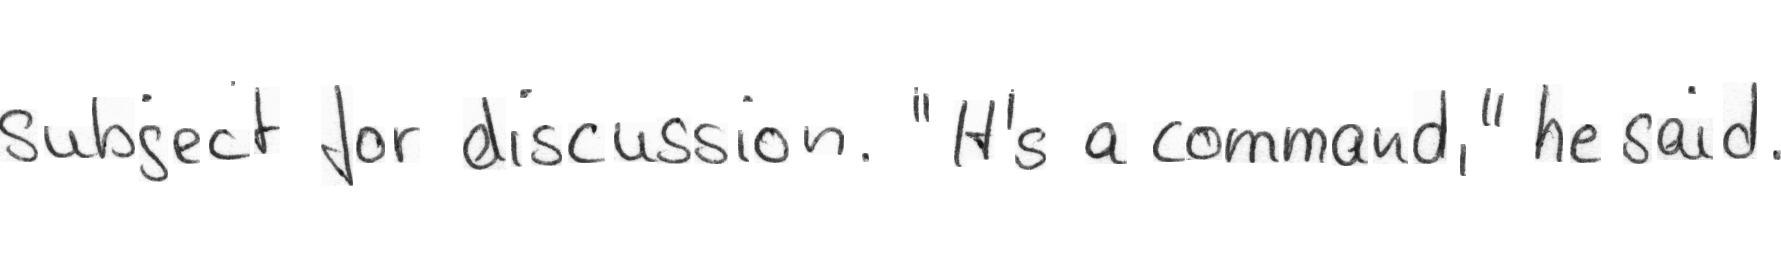 subject for discussion. "It's a command," he said.